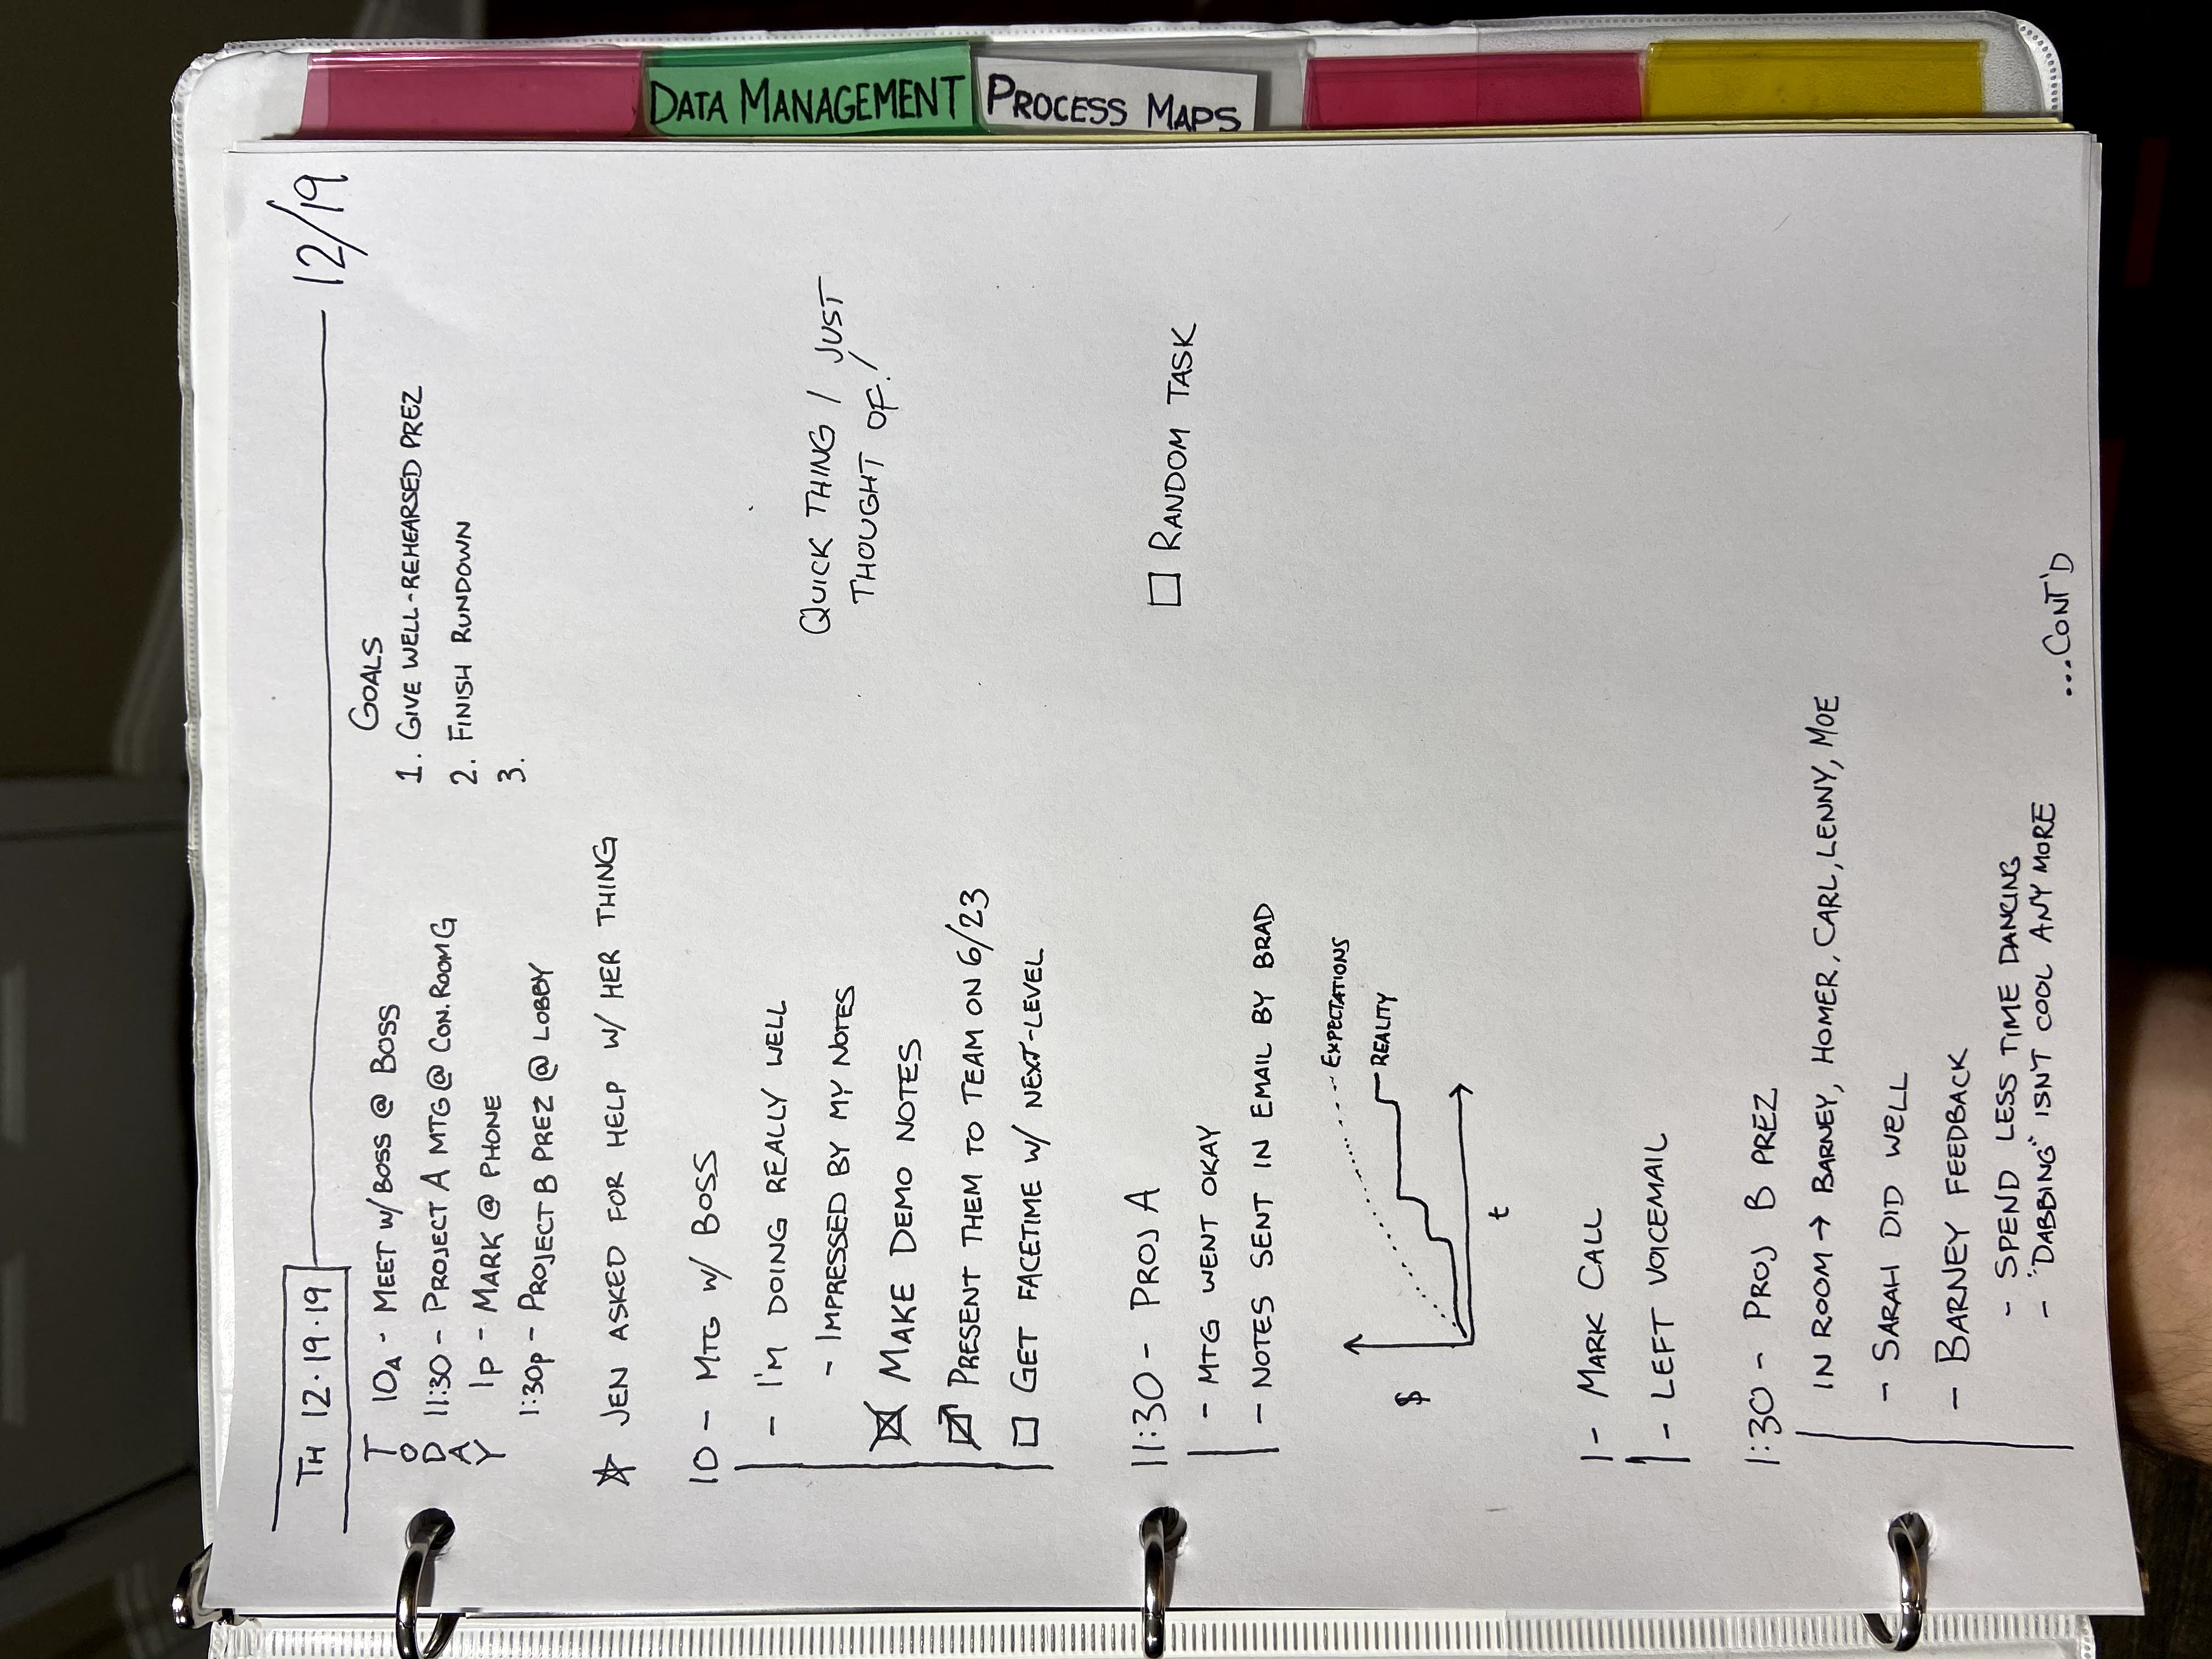 TH 12·19·19
12/19
TODAY
10A - MEET W/ BOSS @ BOSS
11:30 - PROJECT A MTG @ CON. ROOM G
1P - MARK @ PHONE
1:30P - PROJECT B PREZ @ LOBBY
GOALS
1. GIVE WELL-REHEARSED PREZ
2. FINISH RUNDOWN
3.
☆ JEN ASKED FOR HELP W/ HER THING
10 - MTG W/ BOSS
- I'M DOING REALLY WELL
- IMPRESSED BY MY NOTES
MAKE DEMO NOTES
PRESENT THEM TO TEAM ON 6/23
GET FACETIME W/ NEXT-LEVEL
QUICK THING I JUST
THOUGHT OF!
11:30 - PROJ A
- MTG WENT OKAY
- NOTES SENT IN EMAIL BY BRAD
RANDOM TASK
EXPECTATIONS
REALITY
$
t
1 - MARK CALL
- LEFT VOICEMAIL
1:30 - PROJ B PREZ
IN ROOM → BARNEY, HOMER, CARL, LENNY, MOE
- SARAH DID WELL
- BARNEY FEEDBACK
- SPEND LESS TIME DANCING
- "DABBING" ISN'T COOL ANY MORE
...CONT'D
DATA MANAGEMENT
PROCESS MAPS